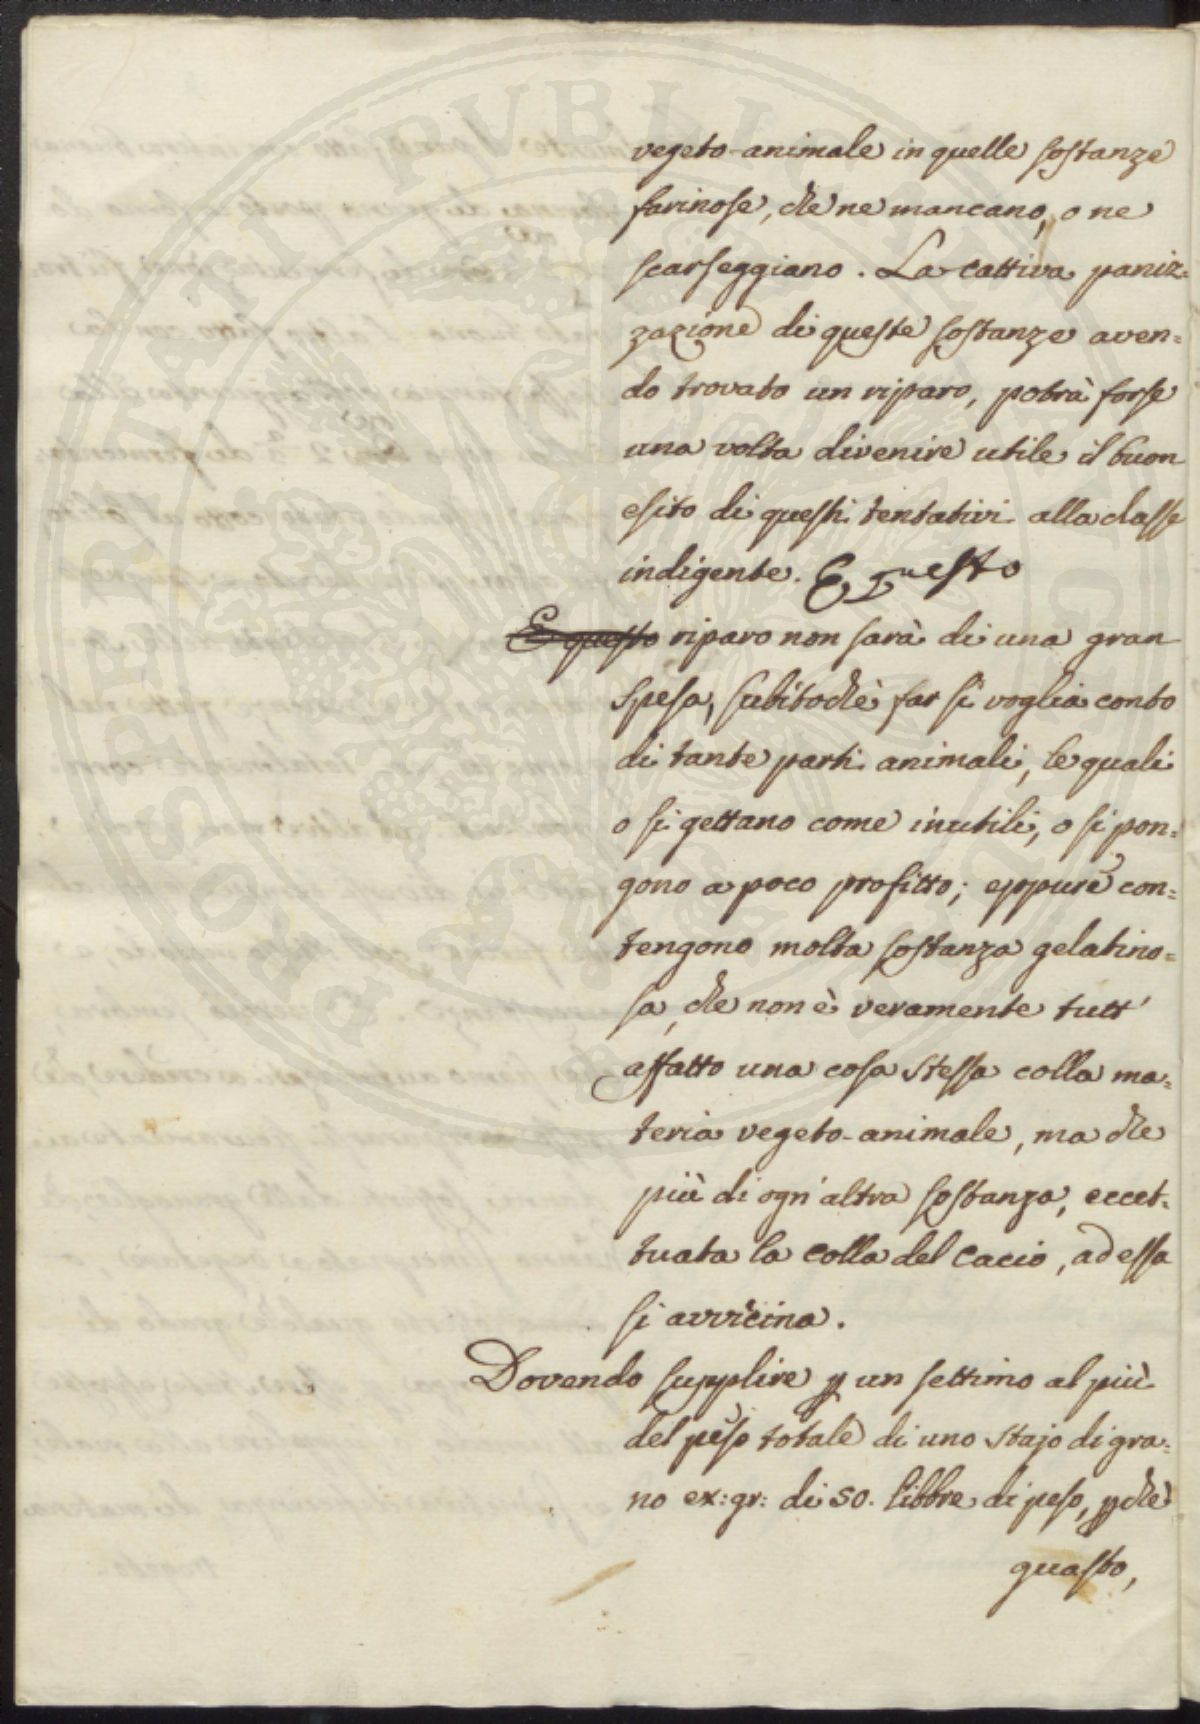 vegeto-animale in quelle sostanze
farinose, che ne mancano, o ne
scarseggiano. La cattiva paniz=
zazione di queste sostanze aven=
do trovato un riparo, potrà forse
una volta divenire utile il buon
esito di questi tentativi alla classe
indigente. E questo
E questo riparo non sarà di una gran
spesa, subitochè far si voglia conto
di tante parti animali, le quali
o si gettano come inutili, o si pon=
gono a poco profitto; eppure con=
tengono molta sostanza gelatino=
sa, che non è veramente tutt'
affatto una cosa stessa colla ma=
teria vegeto-animale, ma che
più di ogn'altra sostanza, eccet=
tuata la colla del cacio, ad essa
si avvicina.
Dovendo supplire p un settimo al più
del peso totale di uno stajo di gra=
no ex: gr: di 50. libbre di peso, pchè
guasto,
PROSPERITATI PUBLICAE AUGENDAE